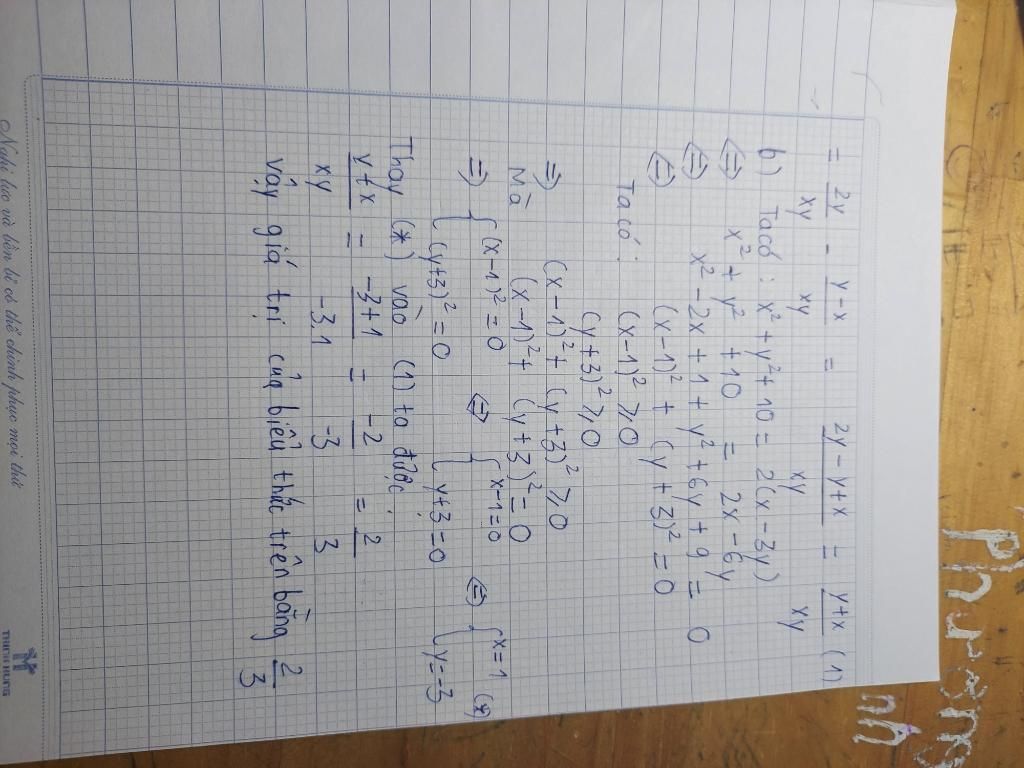 = 2y/xy - y-x/xy = 2y-y+x/xy = y+x/xy (1)
b) Ta có : x² + y² + 10 = 2(x - 3y)
⇔ x² + y² + 10 = 2x - 6y
⇔ x² - 2x + 1 + y² + 6y + 9 = 0
⇔ (x-1)² + (y+3)² = 0
Ta có : (x-1)² ⩾ 0
(y+3)² ⩾ 0
⇒ (x-1)² + (y+3)² ⩾ 0
Mà (x-1)² + (y+3)² = 0
⇒ { (x-1)² = 0 ⇔ { x-1=0 ⇔ { x=1 (*)
(y+3)² = 0 { y+3=0 { y=-3
Thay (*) vào (1) ta được:
y+x/xy = -3+1/-3.1 = -2/-3 = 2/3
Vậy giá trị của biểu thức trên bằng 2/3
Nghị lực và bền bỉ có thể chinh phục mọi thứ
THIEN HUNG
Phương
nh